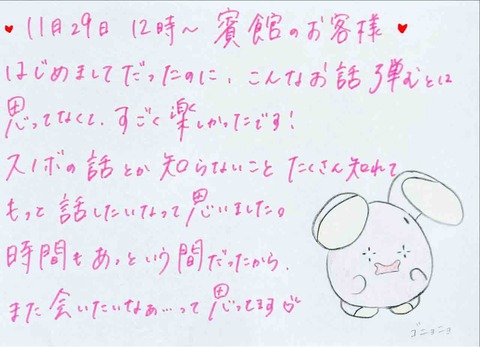 ♥ 11月29日 12時〜 賓館のお客様 ♥
はじめましてだったのに、こんなお話弾むとは
思ってなくて、すごく楽しかったです!
スノボの話とか知らないことたくさん知れて
もっと話したいなって思いました。
時間もあっという間だったから、
また会いたいなぁ…って思ってます♡
ゴニョニョ